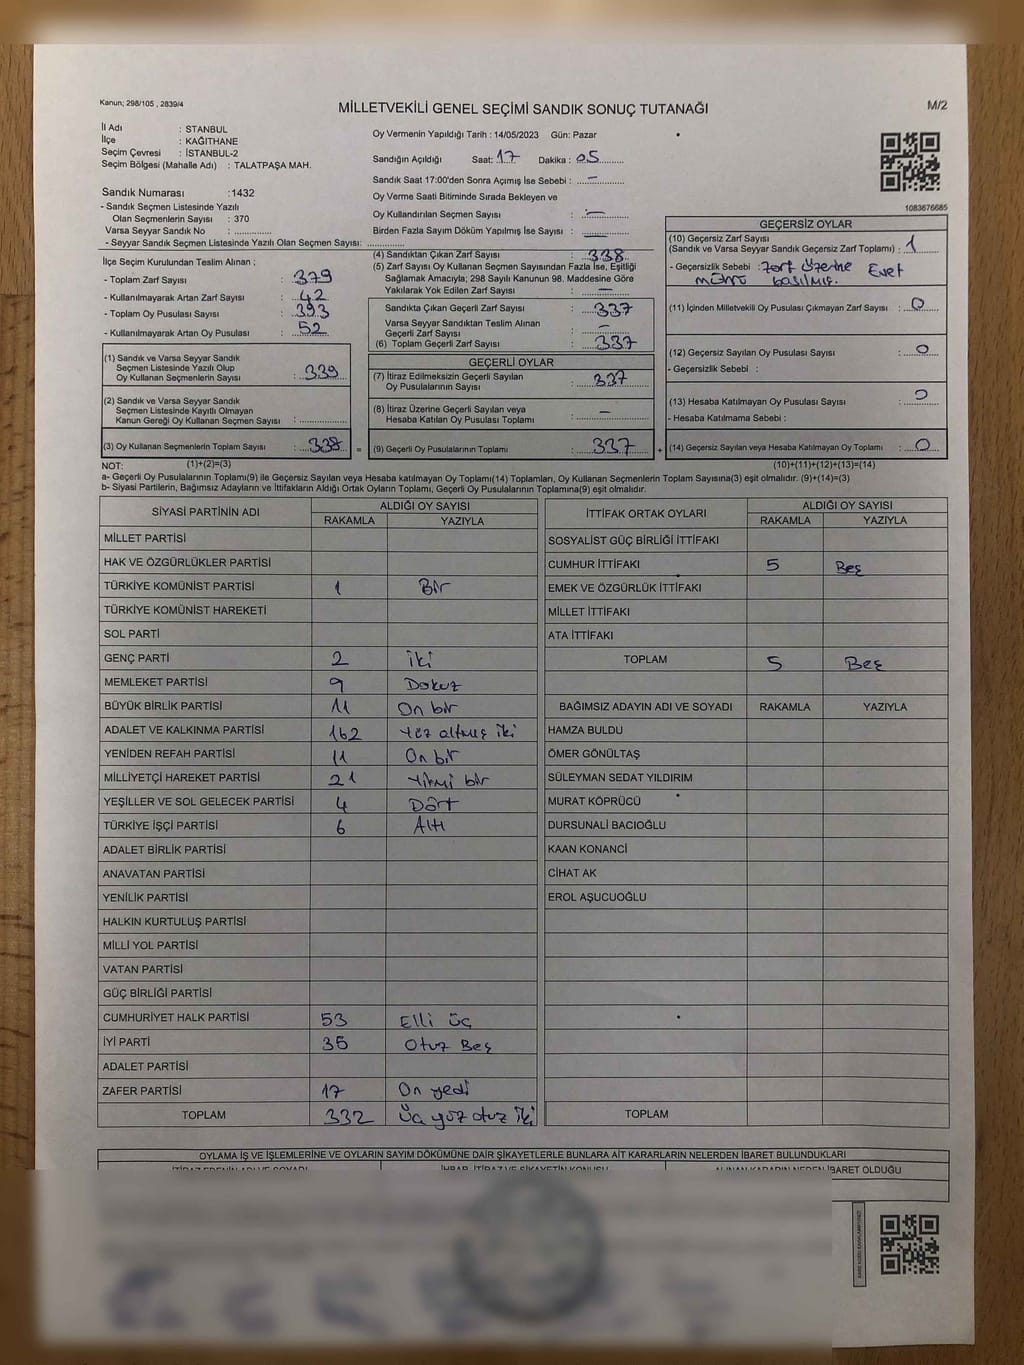 Kanun; 298/105 , 2839/4
MİLLETVEKİLİ GENEL SEÇİMİ SANDIK SONUÇ TUTANAĞI
M/2
İl Adı : STANBUL
İlçe : KAĞITHANE
Seçim Çevresi : İSTANBUL-2
Seçim Bölgesi (Mahalle Adı) : TALATPAŞA MAH.
Oy Vermenin Yapıldığı Tarih : 14/05/2023 Gün: Pazar
Sandığın Açıldığı Saat: 17 Dakika : 05
Sandık Saat 17:00'den Sonra Açımış İse Sebebi : –
Oy Verme Saati Bitiminde Sırada Bekleyen ve
Oy Kullandırılan Seçmen Sayısı : –
Birden Fazla Sayım Döküm Yapılmış İse Sayısı : –
1083676685
Sandık Numarası :1432
- Sandık Seçmen Listesinde Yazılı
Olan Seçmenlerin Sayısı : 370
Varsa Seyyar Sandık No : ..............
- Seyyar Sandık Seçmen Listesinde Yazılı Olan Seçmen Sayısı: ..............
İlçe Seçim Kurulundan Teslim Alınan ;
- Toplam Zarf Sayısı : 379
- Kullanılmayarak Artan Zarf Sayısı : 42
- Toplam Oy Pusulası Sayısı : 393
- Kullanılmayarak Artan Oy Pusulası : 52
(1) Sandık ve Varsa Seyyar Sandık
Seçmen Listesinde Yazılı Olup
Oy Kullanan Seçmenlerin Sayısı : 339
(2) Sandık ve Varsa Seyyar Sandık
Seçmen Listesinde Kayıtlı Olmayan
Kanun Gereği Oy Kullanan Seçmen Sayısı : ..............
(3) Oy Kullanan Seçmenlerin Toplam Sayısı : 338 =
(4) Sandıktan Çıkan Zarf Sayısı : 338
(5) Zarf Sayısı Oy Kullanan Seçmen Sayısından Fazla İse, Eşitliği
Sağlamak Amacıyla; 298 Sayılı Kanunun 98. Maddesine Göre
Yakılarak Yok Edilen Zarf Sayısı : –
Sandıkta Çıkan Geçerli Zarf Sayısı : 337
Varsa Seyyar Sandıktan Teslim Alınan
Geçerli Zarf Sayısı : –
(6) Toplam Geçerli Zarf Sayısı : 337
GEÇERLİ OYLAR
(7) İtiraz Edilmeksizin Geçerli Sayılan
Oy Pusulalarının Sayısı : 337
(8) İtiraz Üzerine Geçerli Sayılan veya
Hesaba Katılan Oy Pusulası Toplamı : –
(9) Geçerli Oy Pusulalarının Toplamı : 337 +
GEÇERSİZ OYLAR
(10) Geçersiz Zarf Sayısı
(Sandık ve Varsa Seyyar Sandık Geçersiz Zarf Toplamı) : 1
- Geçersizlik Sebebi : Zarf üzerine Evet
mührü basılmış.
(11) İçinden Milletvekili Oy Pusulası Çıkmayan Zarf Sayısı : 0
(12) Geçersiz Sayılan Oy Pusulası Sayısı : 0
- Geçersizlik Sebebi :
(13) Hesaba Katılmayan Oy Pusulası Sayısı : 0
- Hesaba Katılmama Sebebi :
(14) Geçersiz Sayılan veya Hesaba Katılmayan Oy Toplamı : 0
NOT: (1)+(2)=(3) (10)+(11)+(12)+(13)=(14)
a- Geçerli Oy Pusulalarının Toplamı(9) ile Geçersiz Sayılan veya Hesaba katılmayan Oy Toplamı(14) Toplamları, Oy Kullanan Seçmenlerin Toplam Sayısına(3) eşit olmalıdır. (9)+(14)=(3)
b- Siyasi Partilerin, Bağımsız Adayların ve İttifakların Aldığı Ortak Oyların Toplamı, Geçerli Oy Pusulalarının Toplamına(9) eşit olmalıdır.
SİYASİ PARTİNİN ADI ALDIĞI OY SAYISI
RAKAMLA YAZIYLA
MİLLET PARTİSİ
HAK VE ÖZGÜRLÜKLER PARTİSİ
TÜRKİYE KOMÜNİST PARTİSİ 1 Bir
TÜRKİYE KOMÜNİST HAREKETİ
SOL PARTİ
GENÇ PARTİ 2 iki
MEMLEKET PARTİSİ 9 Dokuz
BÜYÜK BİRLİK PARTİSİ 11 On bir
ADALET VE KALKINMA PARTİSİ 162 Yüz altmış iki
YENİDEN REFAH PARTİSİ 11 On bir
MİLLİYETÇİ HAREKET PARTİSİ 21 Yirmi bir
YEŞİLLER VE SOL GELECEK PARTİSİ 4 Dört
TÜRKİYE İŞÇİ PARTİSİ 6 Altı
ADALET BİRLİK PARTİSİ
ANAVATAN PARTİSİ
YENİLİK PARTİSİ
HALKIN KURTULUŞ PARTİSİ
MİLLİ YOL PARTİSİ
VATAN PARTİSİ
GÜÇ BİRLİĞİ PARTİSİ
CUMHURİYET HALK PARTİSİ 53 Elli üç
İYİ PARTİ 35 Otuz Beş
ADALET PARTİSİ
ZAFER PARTİSİ 17 On yedi
TOPLAM 332 Üç yüz otuz iki
İTTİFAK ORTAK OYLARI ALDIĞI OY SAYISI
RAKAMLA YAZIYLA
SOSYALİST GÜÇ BİRLİĞİ İTTİFAKI
CUMHUR İTTİFAKI 5 Beş
EMEK VE ÖZGÜRLÜK İTTİFAKI
MİLLET İTTİFAKI
ATA İTTİFAKI
TOPLAM 5 Beş
BAĞIMSIZ ADAYIN ADI VE SOYADI RAKAMLA YAZIYLA
HAMZA BULDU
ÖMER GÖNÜLTAŞ
SÜLEYMAN SEDAT YILDIRIM
MURAT KÖPRÜCÜ
DURSUNALİ BACIOĞLU
KAAN KONANCİ
CİHAT AK
EROL AŞUCUOĞLU
TOPLAM
OYLAMA İŞ VE İŞLEMLERİNE VE OYLARIN SAYIM DÖKÜMÜNE DAİR ŞİKAYETLERLE BUNLARA AİT KARARLARIN NELERDEN İBARET BULUNDUKLARI
İTİRAZ EDENİN ADI VE SOYADI İHBAR, İTİRAZ VE ŞİKAYETİN KONUSU ALINAN KARARIN NEDEN İBARET OLDUĞU